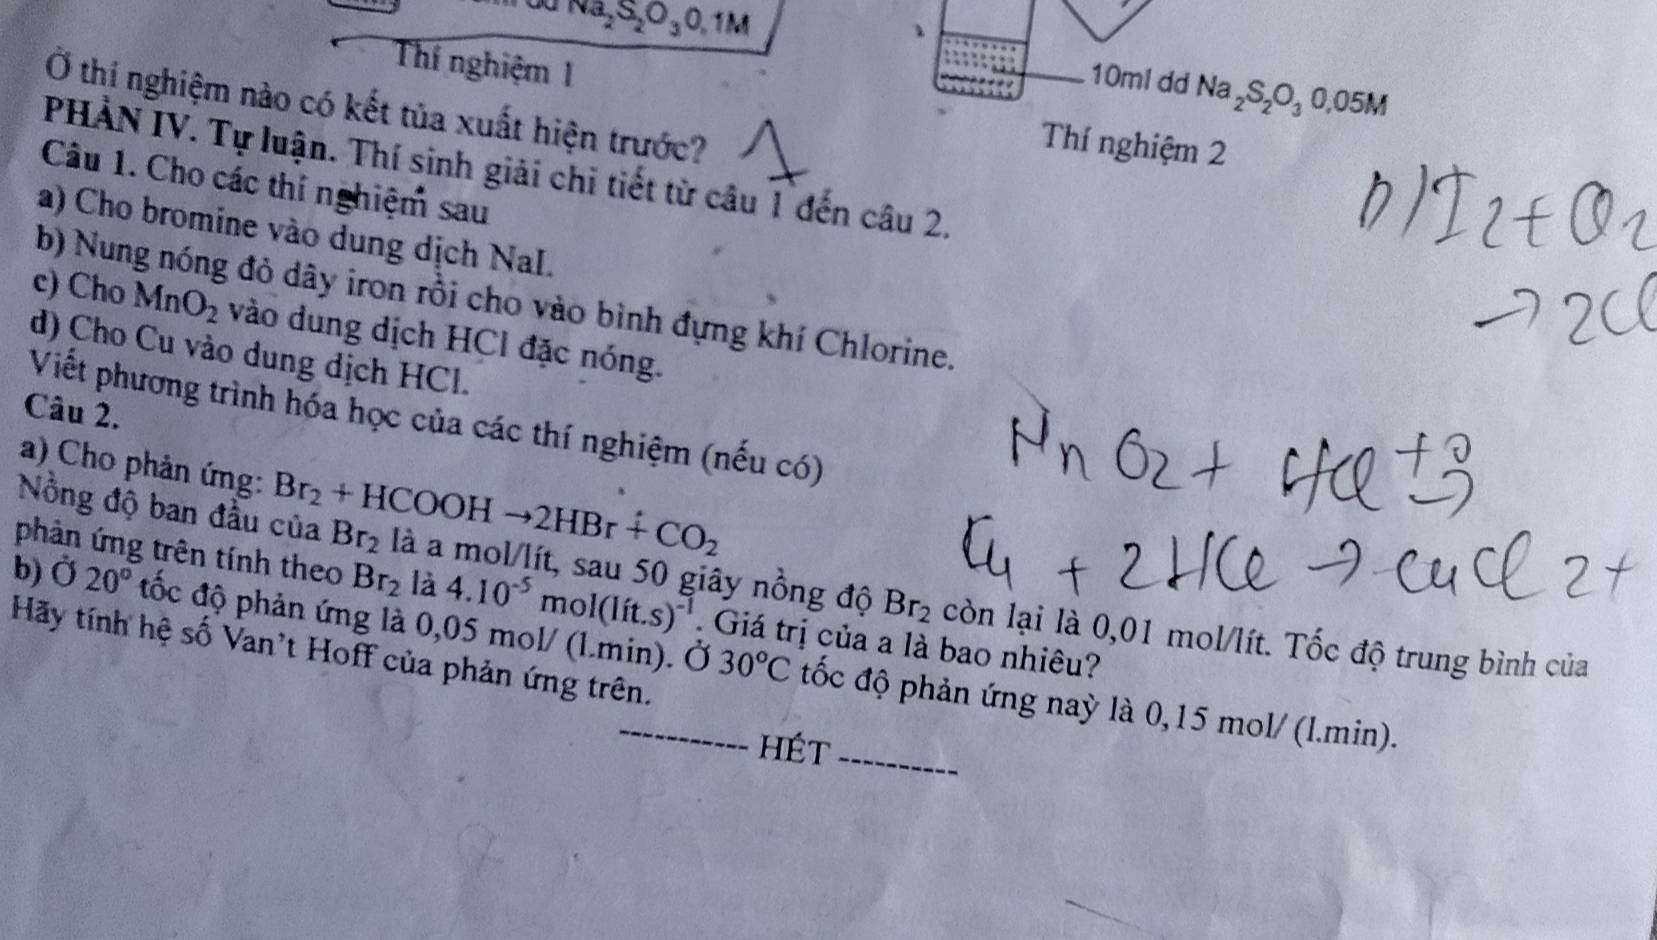 Na₂S₂O₃ 0,1M
Thí nghiệm 1
10ml dd Na₂S₂O₃ 0,05M
Thí nghiệm 2
Ở thí nghiệm nào có kết tủa xuất hiện trước?
1
PHẦN IV. Tự luận. Thí sinh giải chi tiết từ câu 1 đến câu 2.
Câu 1. Cho các thí nghiệm sau
a) Cho bromine vào dung dịch NaI.
b) Nung nóng đỏ dây iron rồi cho vào bình đựng khí Chlorine.
c) Cho MnO₂ vào dung dịch HCl đặc nóng.
d) Cho Cu vào dung dịch HCl.
Viết phương trình hóa học của các thí nghiệm (nếu có)
Câu 2.
a) Cho phản ứng: Br₂ + HCOOH → 2HBr + CO₂
Nồng độ ban đầu của Br₂ là a mol/lít, sau 50 giây nồng độ Br₂ còn lại là 0,01 mol/lít. Tốc độ trung bình của
phản ứng trên tính theo Br₂ là 4.10⁻⁵ mol(lít.s)⁻¹. Giá trị của a là bao nhiêu?
b) Ở 20° tốc độ phản ứng là 0,05 mol/ (l.min). Ở 30°C tốc độ phản ứng naỳ là 0,15 mol/ (l.min).
Hãy tính hệ số Van't Hoff của phản ứng trên.
----------- HẾT ----------
b) I2 + O2
→ 2Cl
MnO2 + HCl
Cu + 2HCl → CuCl2 +